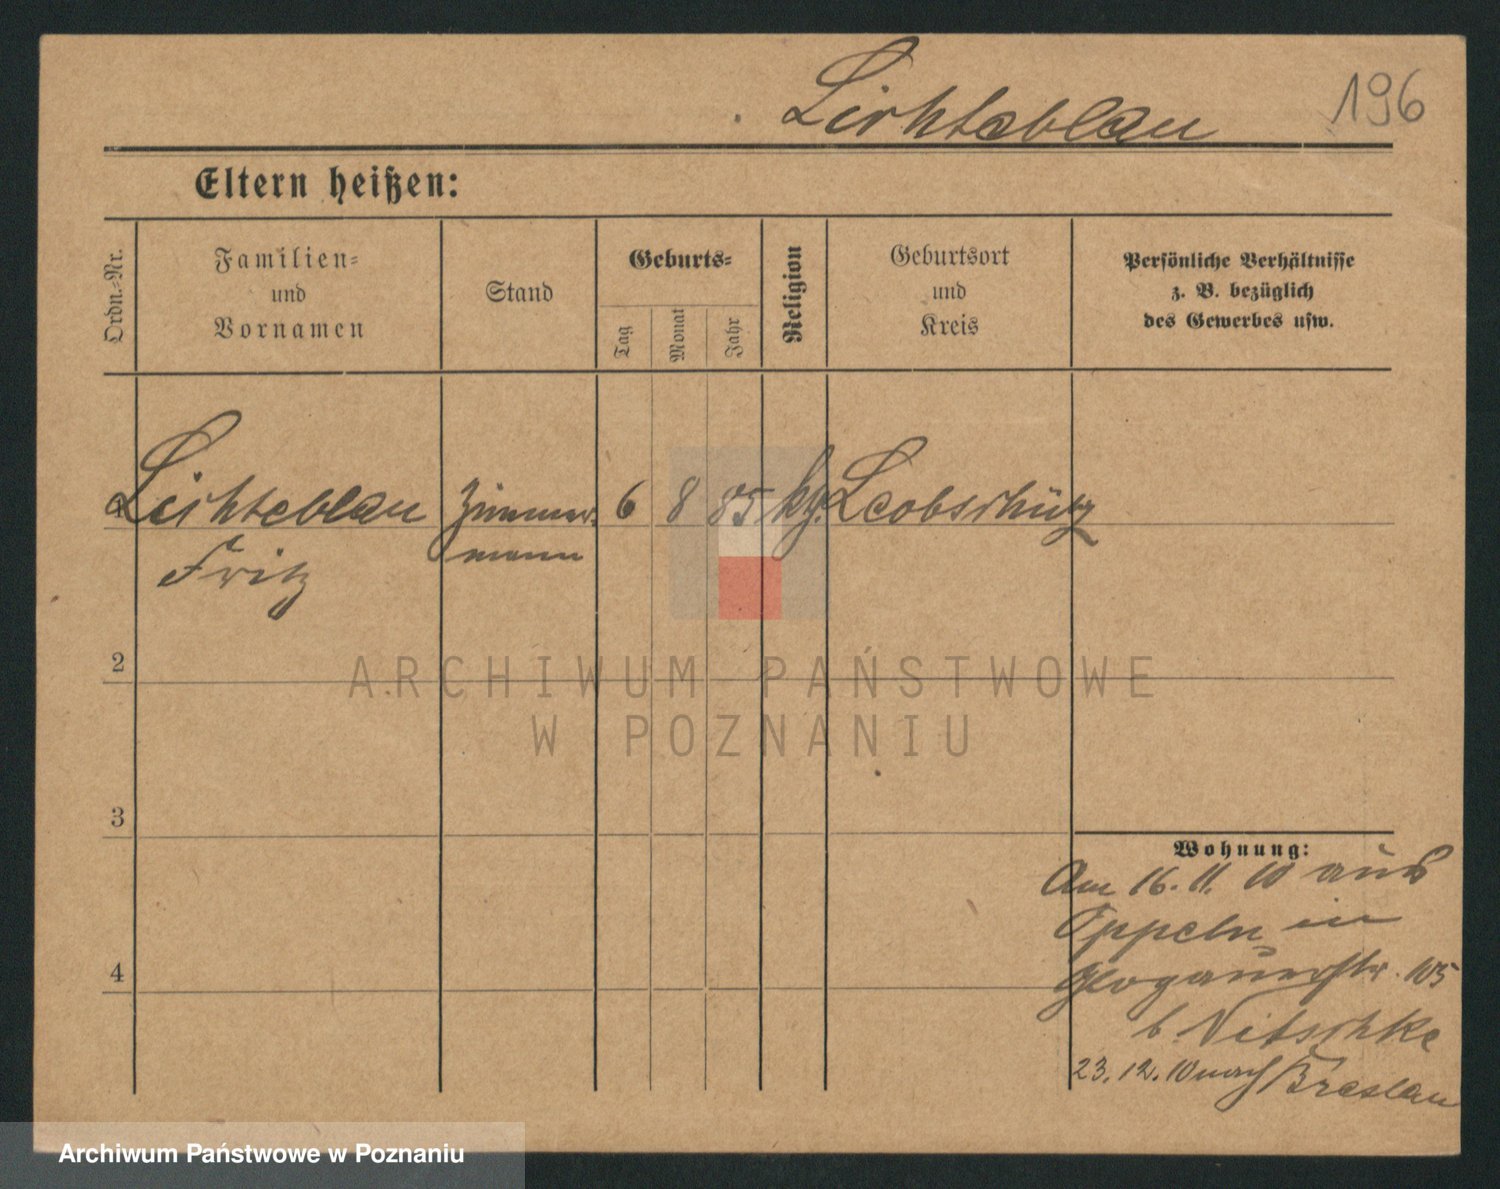 Lichteblau 196
Eltern heißen:
Ordn.-Nr.
Familien-
und
Vornamen
Stand
Geburts-
Tag
Monat
Jahr
Religion
Geburtsort
und
Kreis
Persönliche Verhältnisse
z. B. bezüglich
des Gewerbes usw.
1 Lichteblau Zimmer- 6 8 85 kg. Leobschütz
Fritz mann
2
ARCHIWUM PAŃSTWOWE
W POZNANIU
3
Wohnung:
Am 16. 11. 10 aus
Oppeln in
Glogauerstr. 105
b. Nitschke
4
23. 12. 10 nach Breslau
Archiwum Państwowe w Poznaniu